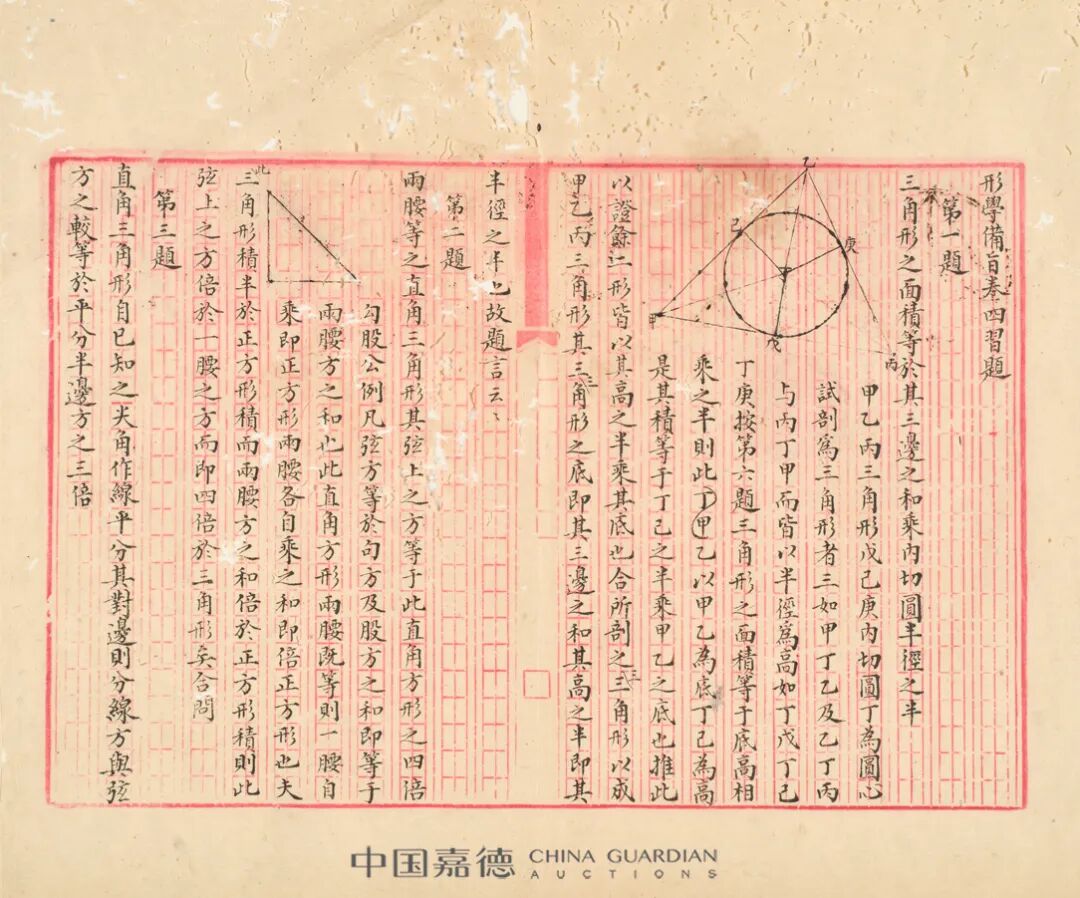 形學備旨卷四習題
第一題
三角形之面積等於其三邊之和乘內切圓半徑之半
甲乙丙三角形戊己庚內切圓丁為圓心
試剖爲三角形者三如甲丁乙及乙丁丙
与丙丁甲而皆以半徑爲高如丁戊丁己
丁庚按第六題三角形之面積等于底高相
乘之半則此丁甲乙以甲乙為底丁己為高
是其積等于丁己之半乘甲乙之底也推此
以證餘二形皆以其高之半乘其底也合所剖之三角形以成
甲乙丙三角形其三角形之底即其三邊之和其高之半即其
半徑之半也故題言云云
第二題
兩腰等之直角三角形其弦上之方等于此直角方形之四倍
勾股公例凡弦方等於句方及股方之和即等于
兩腰方之和也此直角方形兩腰既等則一腰自
乘即正方形兩腰各自乘之和即倍正方形也夫
此
三角形積半於正方形積而兩腰方之和倍於正方形積則此
弦上之方倍於一腰之方而即四倍於三角形矣合問
第三題
直角三角形自已知之尖角作線平分其對邊則分線方與弦
方之較等於平分半邊方之三倍
乙
己
庚
甲
戊
丙
中国嘉德 CHINA GUARDIAN
AUCTIONS